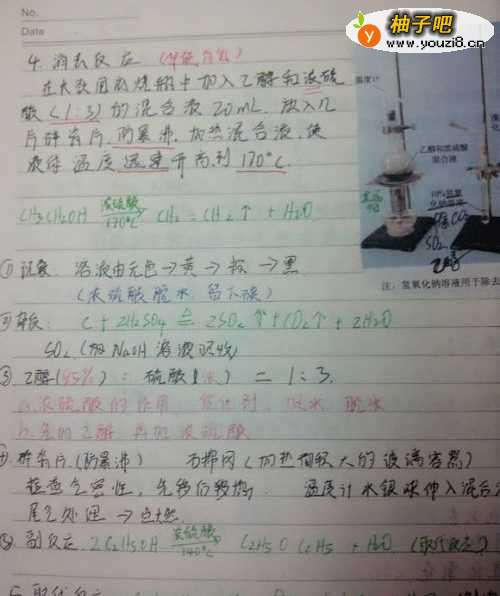 No.
Date
柚子吧
www.youzi8.cn
4. 消去反应
在长颈圆底烧瓶中加入乙醇和浓硫
酸(1:3)的混合液20mL. 放入几
片碎瓷片.防暴沸.加热混合液.使
液体温度迅速升高到170℃.
温度计
乙醇和浓硫酸
混合液
CH3CH2OH 浓硫酸 170℃ CH2=CH2↑ + H2O
SO2
①现象. 溶液由无色→黄→棕→黑
(浓硫酸脱水 留下碳)
注:氢氧化钠溶液用于除去
②杂质: C + 2H2SO4 △ 2SO2↑+CO2↑ + 2H2O
SO2(用NaOH溶液吸收)
③乙醇(95%): 硫酸(浓) = 1:3.
a.浓硫酸的作用. 催化剂. 吸水 脱水
b.先加乙醇 再加浓硫酸
④.碎瓷片.(防暴沸) 石棉网(加热面积大的玻璃容器)
检查气密性, 先移后熄. 温度计水银球伸入混合
尾气处理→点燃.
⑤.副反应. 2C2H5OH 浓硫酸 140℃ C2H5OC2H5 + H2O (取代反应)
5.取代反应